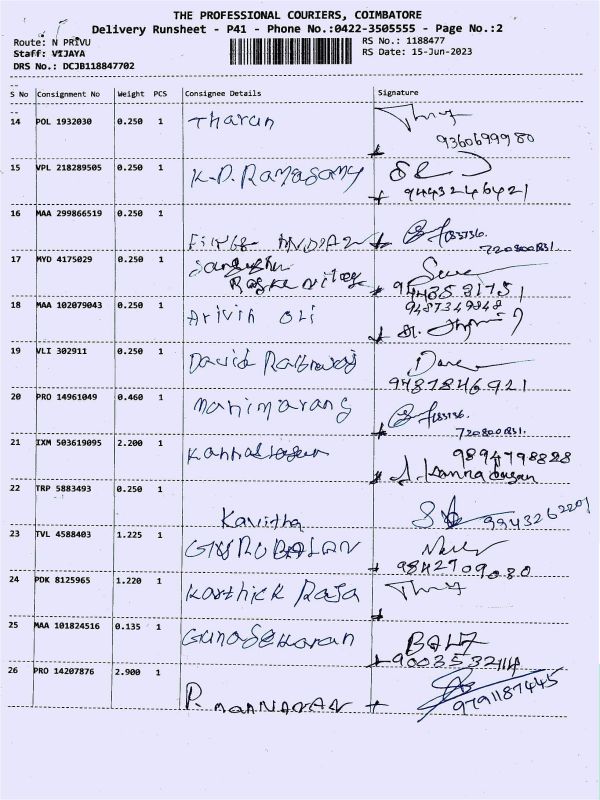 THE PROFESSIONAL COURIERS, COIMBATORE
Delivery Runsheet - P41 - Phone No.:0422-3505555 - Page No.:2
Route: N PRIVU RS No.: 1188477
Staff: VIJAYA RS Date: 15-Jun-2023
DRS No.: DCJB118847702
S No Consignment No Weight PCS Consignee Details Signature
14 POL 1932030 0.250 1 Tharun
9360699980
15 VPL 218289505 0.250 1 K.D. Ramasamy
9443246421
16 MAA 299866519 0.250 1
17 MYD 4175029 0.250 1
9443531751
18 MAA 102079043 0.250 1 Arivin oli 9487349848
19 VLI 302911 0.250 1 David
9487846921
20 PRO 14961049 0.460 1 manimarang
21 IXM 503619095 2.200 1 9894798828
22 TRP 5883493 0.250 1
Kavitha 9943262201
23 TVL 4588403 1.225 1 GURUBALAN
9842709080
24 PDK 8125965 1.220 1 Karthick Raja
25 MAA 101824516 0.135 1 Gunasekaran
9003532114
26 PRO 14207876 2.900 1 P.
9791187445